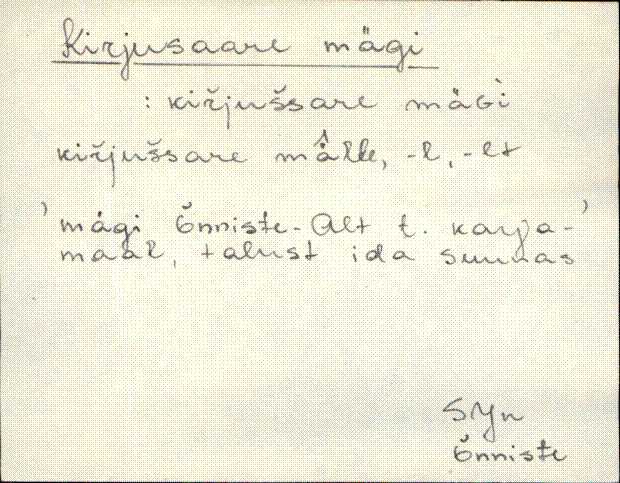 Kirjusaare mägi
: kiřjušsare mäGì
kiřjušsare mä̂lle, -l, -lt
'mägi Õnniste-Alt t. karja-'
maal, talust ida suunas
SJn
Õnniste